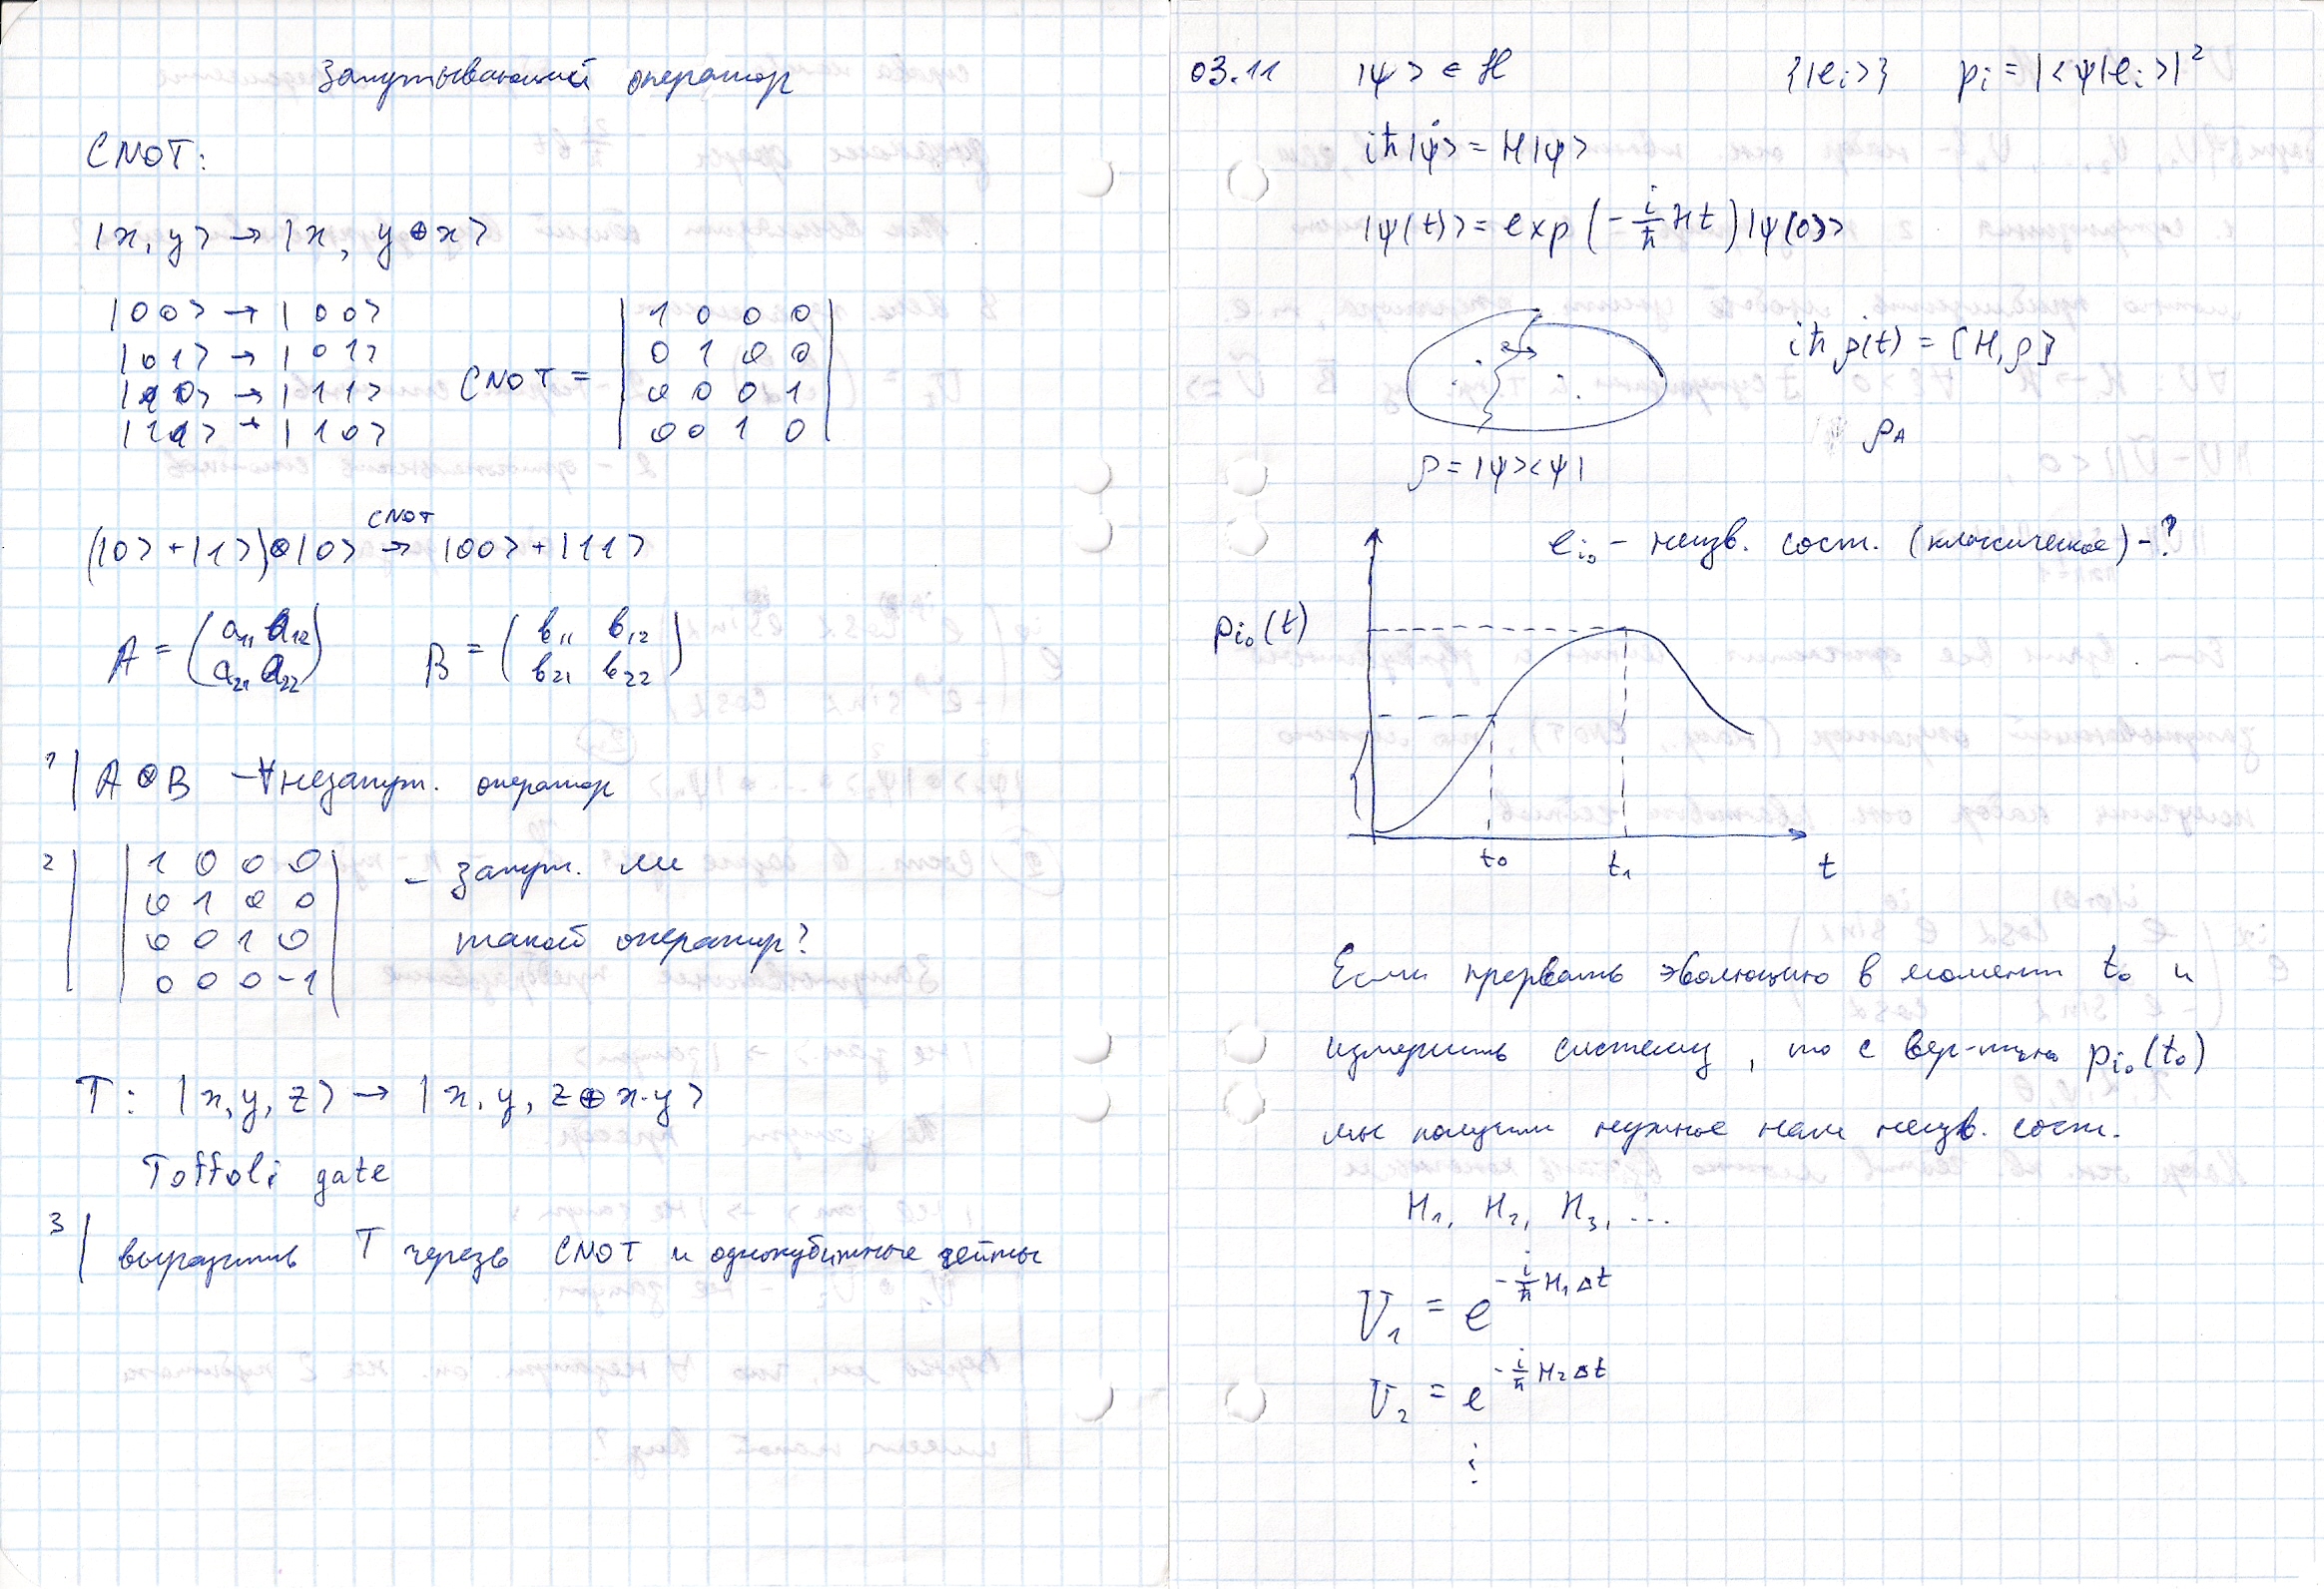 Запутывающий оператор
CNOT:
|x, y> → |x, y⊕x>
|00> → |00>
|01> → |01>
|10> → |11>
|11> → |10>
CNOT =
1 0 0 0
0 1 0 0
0 0 0 1
0 0 1 0
CNOT
(|0> + |1>)⊗|0> → |00> + |11>
A = (a₁₁ a₁₂
a₂₁ a₂₂)
B = (b₁₁ b₁₂
b₂₁ b₂₂)
1| A ⊗ B – ∀ незапут. оператор
2|
1 0 0 0
0 1 0 0
0 0 1 0
0 0 0 -1
– запут. ли
такой оператор?
T: |x, y, z> → |x, y, z⊕x·y>
Toffoli gate
3| выразить T через CNOT и однокубитные гейты
03.11 |ψ> ∈ ℋ {|e_i>} p_i = |<ψ|e_i>|²
iħ|ψ̇> = H|ψ>
|ψ(t)> = exp(-i/ħ Ht)|ψ(0)>
iħ ρ̇(t) = [H, ρ]
ρ_A
ρ = |ψ><ψ|
e_i₀ – неизв. сост. (классическое) – ?
p_i₀(t)
t₀ t₁ t
Если прервать эволюцию в момент t₀ и
измерить систему, то с вер-тью p_i₀(t₀)
мы получим нужное нам неизв. сост.
H₁, H₂, H₃, ...
U₁ = e^(-i/ħ H₁Δt)
U₂ = e^(-i/ħ H₂Δt)
⋮